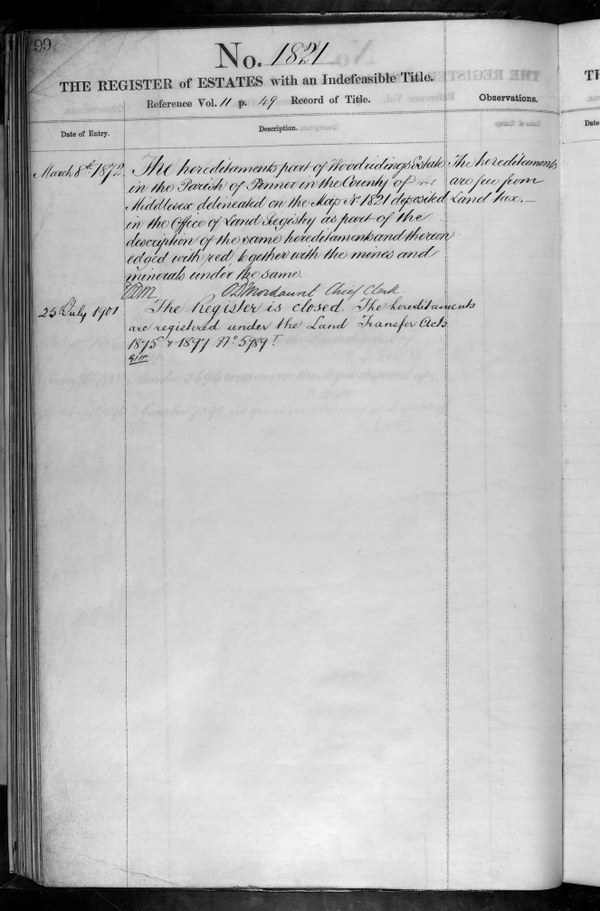 99
No. 1821
THE REGISTER of ESTATES with an Indefeasible Title.
Reference Vol. 11 p. 49 Record of Title.
Observations.
Date of Entry.
Description.
March 8th 1872.
The hereditaments part of Woodridings Estate
in the Parish of Pinner in the County of
Middlesex delineated on the Map No 1821 deposited
in the Office of Land Registry as part of the
description of the same hereditaments and thereon
edged with red together with the mines and
minerals under the same.
Mordaunt Chief Clerk
The hereditaments
are free from
Land tax.
25th July 1901
The Register is closed. The hereditaments
are registered under the Land Transfer Acts
1875 & 1897 No 5989